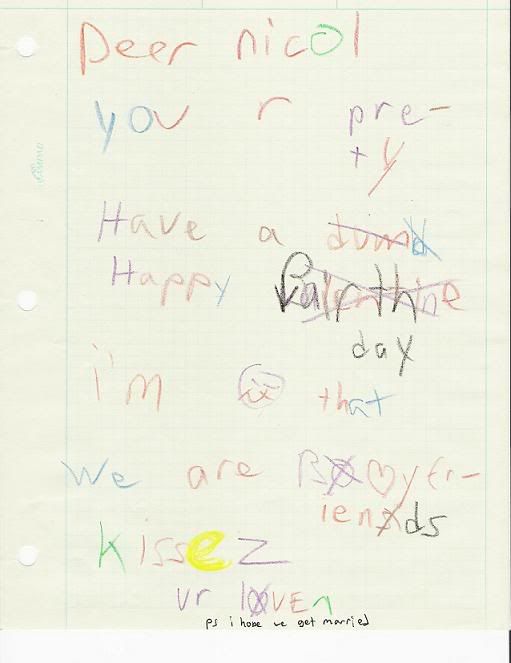 Deer nicol
you r pre-
ty
Have a dumb
Happy
day
i'm that
We are B♡yfr-
iends
Kissez
ur loven
ps i hope we get married